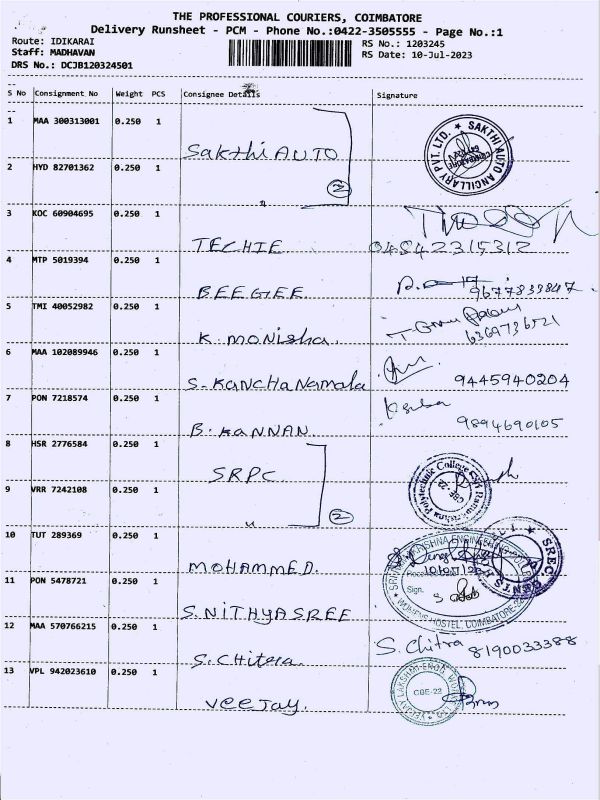 THE PROFESSIONAL COURIERS, COIMBATORE
Delivery Runsheet - PCM - Phone No.:0422-3505555 - Page No.:1
Route: IDIKARAI RS No.: 1203245
Staff: MADHAVAN RS Date: 10-Jul-2023
DRS No.: DCJB120324501
S No Consignment No Weight PCS Consignee Details Signature
1 MAA 300313001 0.250 1
Sakthi AUTO
SAKTHI AUTO ANCILLARY PVT. LTD.
2
2 HYD 82701362 0.250 1
"
3 KOC 60904695 0.250 1
TECHIE 04842315312
4 MTP 5019394 0.250 1
BEEGEE 9677833847
5 TMI 40052982 0.250 1
K. Monisha. 6369736521
6 MAA 102089946 0.250 1
S. KANCHANAmala 9445940204
7 PON 7218574 0.250 1
B. KANNAN 9894690105
8 HSR 2776584 0.250 1
SRPC
Polytechnic College
CBE-22
9 VRR 7242108 0.250 1
" 2
10 TUT 289369 0.250 1
MOHAMMED.
SREC
Sign.
HOSTEL, COIMBATORE-22
11 PON 5478721 0.250 1
S. NITHYASREE
12 MAA 570766215 0.250 1
S. Chitra 8190033388
S. Chitra.
13 VPL 942023610 0.250 1
Veejay.
CBE-22